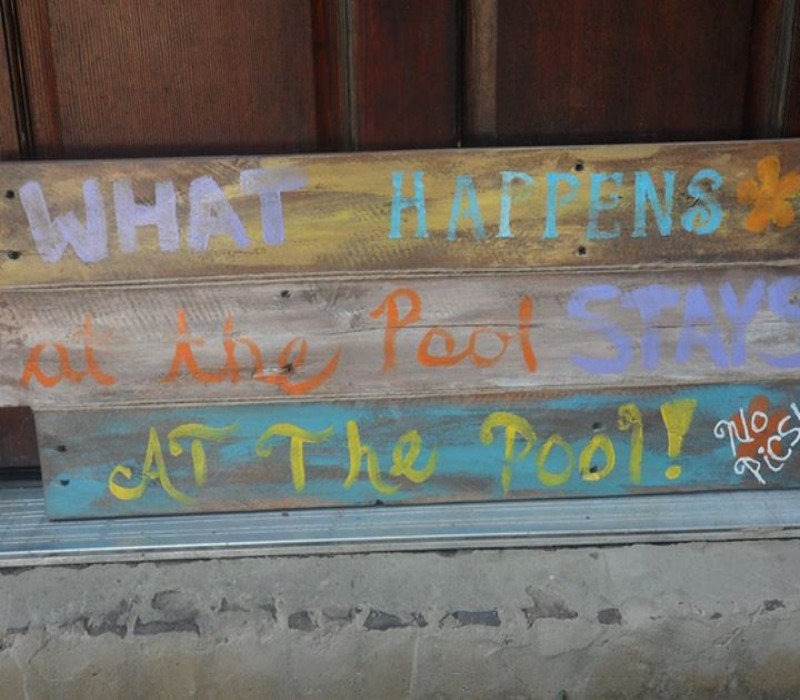 WHAT HAPPENS
at the Pool STAYS
AT The Pool!
No
Pics!